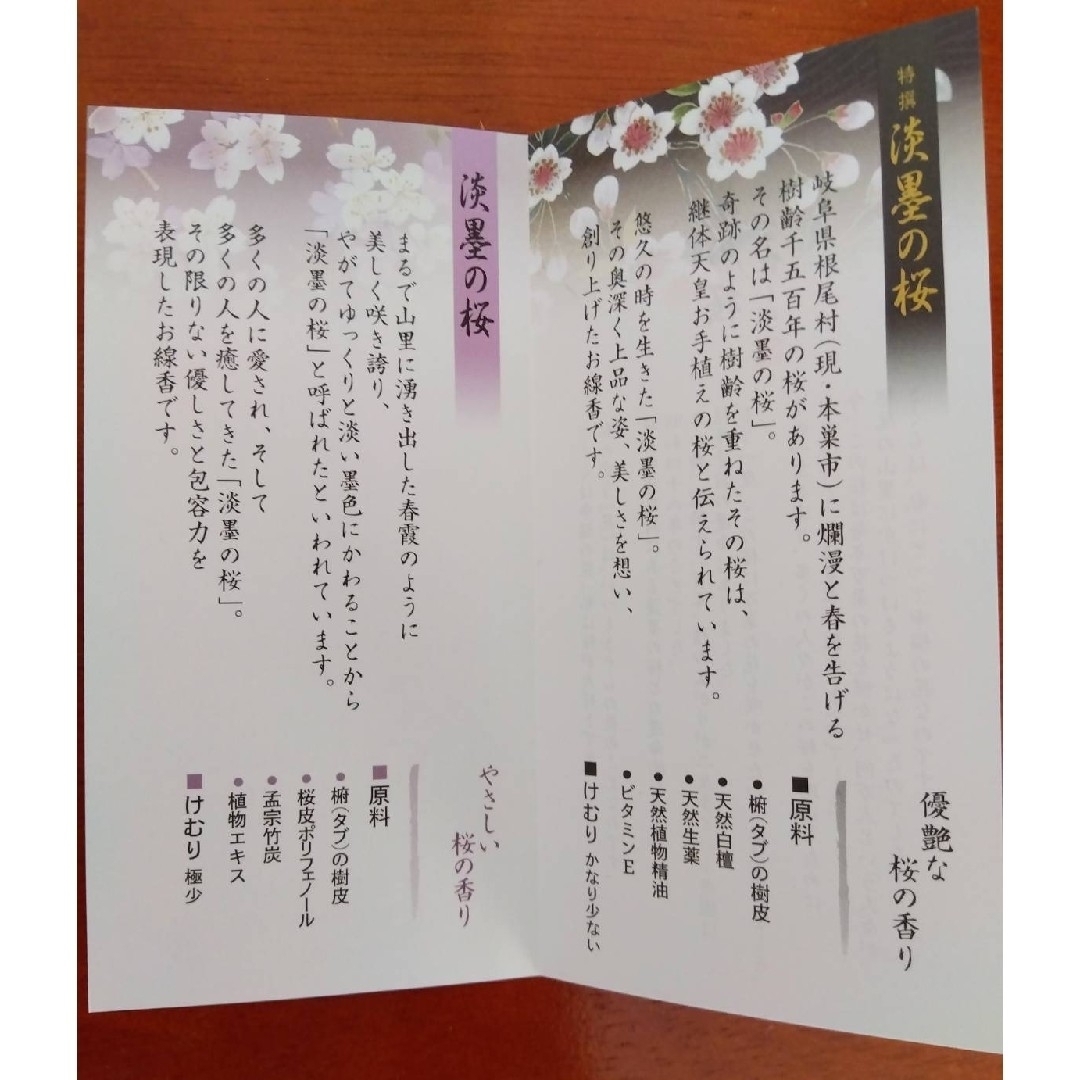 特撰 淡墨の桜
岐阜県根尾村（現・本巣市）に爛漫と春を告げる
樹齢千五百年の桜があります。
その名は「淡墨の桜」。
奇跡のように樹齢を重ねたその桜は、
継体天皇お手植えの桜と伝えられています。
悠久の時を生きた「淡墨の桜」。
その奥深く上品な姿、美しさを想い、
創り上げたお線香です。
優艶な
桜の香り
■原料
●椨（タブ）の樹皮
●天然白檀
●天然生薬
●天然植物精油
●ビタミンE
■けむり かなり少ない
淡墨の桜
まるで山里に湧き出した春霞のように
美しく咲き誇り、
やがてゆっくりと淡い墨色にかわることから
「淡墨の桜」と呼ばれたといわれています。
多くの人に愛され、そして
多くの人を癒してきた「淡墨の桜」。
その限りない優しさと包容力を
表現したお線香です。
やさしい
桜の香り
■原料
●椨（タブ）の樹皮
●桜皮ポリフェノール
●孟宗竹炭
●植物エキス
■けむり 極少